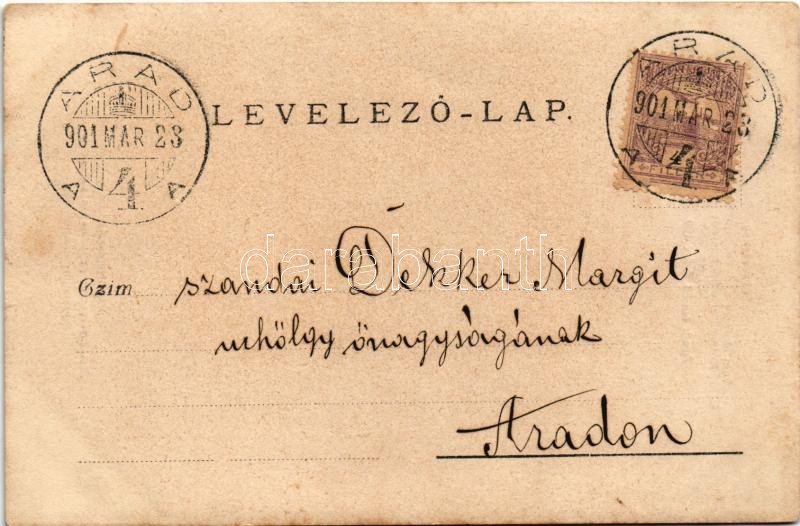 ARAD
901 MAR 23
4
A A
LEVELEZŐ-LAP.
ARAD
901 MAR 23
4
A A
darabanth
Czím szandai Dékker Margit
urhölgy őnagyságának
Aradon